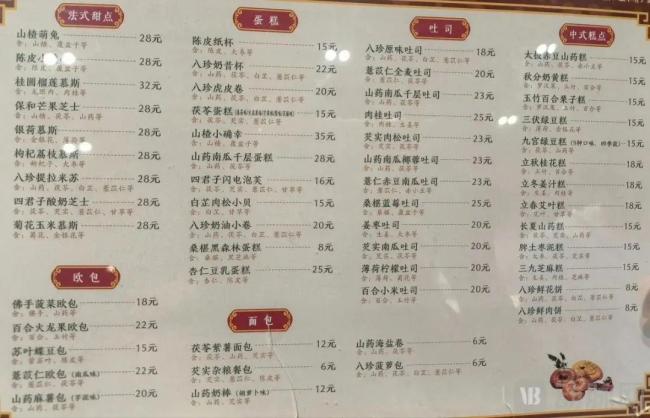 法式甜点
山楂萌兔 28元
含:山楂、覆盆子等
陈皮小 28元
桂圆榴莲慕斯 32元
含:龙眼肉、肉桂等
保和芒果芝士 28元
含:山楂、茯苓、山药等
银荷慕斯 28元
含:金银花、薄荷等
枸杞荔枝慕斯 28元
含:枸杞子、大枣等
八珍提拉米苏 28元
含:山药、茯苓、白芷、薏苡仁等
四君子酸奶芝士 28元
含:茯苓、芡实、薏苡仁、甘草等
菊花玉米慕斯 28元
含:菊花、金银花等
欧包
佛手菠菜欧包 18元
含:佛手、山药等
百合大龙果欧包 22元
含:百合、玉竹等
苏叶蝶豆包 15元
含:紫苏叶、陈皮等
薏苡仁欧包(南瓜味) 22元
含:薏苡仁、茯苓等
山药麻薯包(芋泥味) 20元
含:山药、茯苓等
蛋糕
陈皮纸杯 15元
含:陈皮、大枣等
八珍奶昔杯 22元
含:山药、茯苓、白芷、薏苡仁等
八珍虎皮卷 20元
含:山药、茯苓、白芷、薏苡仁等
茯苓蛋糕 15元
含:茯苓、芡实、茯苓等
山楂小确幸 35元
含:山楂、覆盆子等
山药南瓜千层蛋糕 28元
含:山药、茯苓等
四君子闪电泡芙 16元
含:茯苓、芡实、薏苡仁、甘草等
白芷肉松小贝 15元
含:白芷、甘草等
八珍奶油小卷 20元
含:山药、茯苓、白芷、薏苡仁等
桑椹黑森林蛋糕 8元
含:桑椹、黑芝麻等
杏仁豆乳蛋糕 25元
含:杏仁、陈皮等
面包
茯苓紫薯面包 12元
含:茯苓、山药、芡实等
芡实杂粮餐包 6元
含:芡实、薏苡仁、陈皮等
山药奶棒(胡萝卜味) 12元
含:山药、芡实等
吐司
八珍原味吐司 18元
含:山药、茯苓、白芷、薏苡仁等
薏苡仁全麦吐司 20元
含:薏苡仁、茯苓等
山药南瓜千层吐司 23元
含:山药、茯苓等
肉桂吐司 23元
含:肉桂、生姜等
芡实肉松吐司 23元
含:芡实、茯苓等
山药南瓜榔蓉吐司 23元
含:山药、茯苓等
薏仁赤豆南瓜吐司 23元
含:薏苡仁、赤小豆等
桑椹蓝莓吐司 23元
含:桑椹、茯苓等
姜枣吐司 20元
含:生姜、大枣等
芡实南瓜吐司 20元
含:芡实、茯苓等
薄荷柠檬吐司 20元
含:薄荷、菊花等
百合小米吐司 20元
含:百合、玉竹等
山药海盐卷 6元
含:山药、茯苓等
八珍菠萝包 6元
含:山药、茯苓、白芷、薏苡仁等
中式糕点
太极赤豆山药糕 15元
含:山药、茯苓、赤小豆等
秋分奶黄糕 15元
玉竹百合果子糕 15元
三伏绿豆糕 15元
含:薄荷、金银花等
九宫绿豆糕 15元
含:茯苓、山药等
立秋桂花糕 15元
含:玉竹、百合等
立冬姜汁糕 15元
含:生姜、肉桂等
立春艾叶糕 15元
含:艾叶、甘草等
长夏山药糕 15元
含:茯苓、芡实、山药等
脾土枣泥糕 15元
三九芝麻糕 15元
八珍鲜花饼 8元
含:山药、茯苓、白芷、薏苡仁等
八珍鲜肉饼 8元
含:山药、茯苓、白芷、薏苡仁等